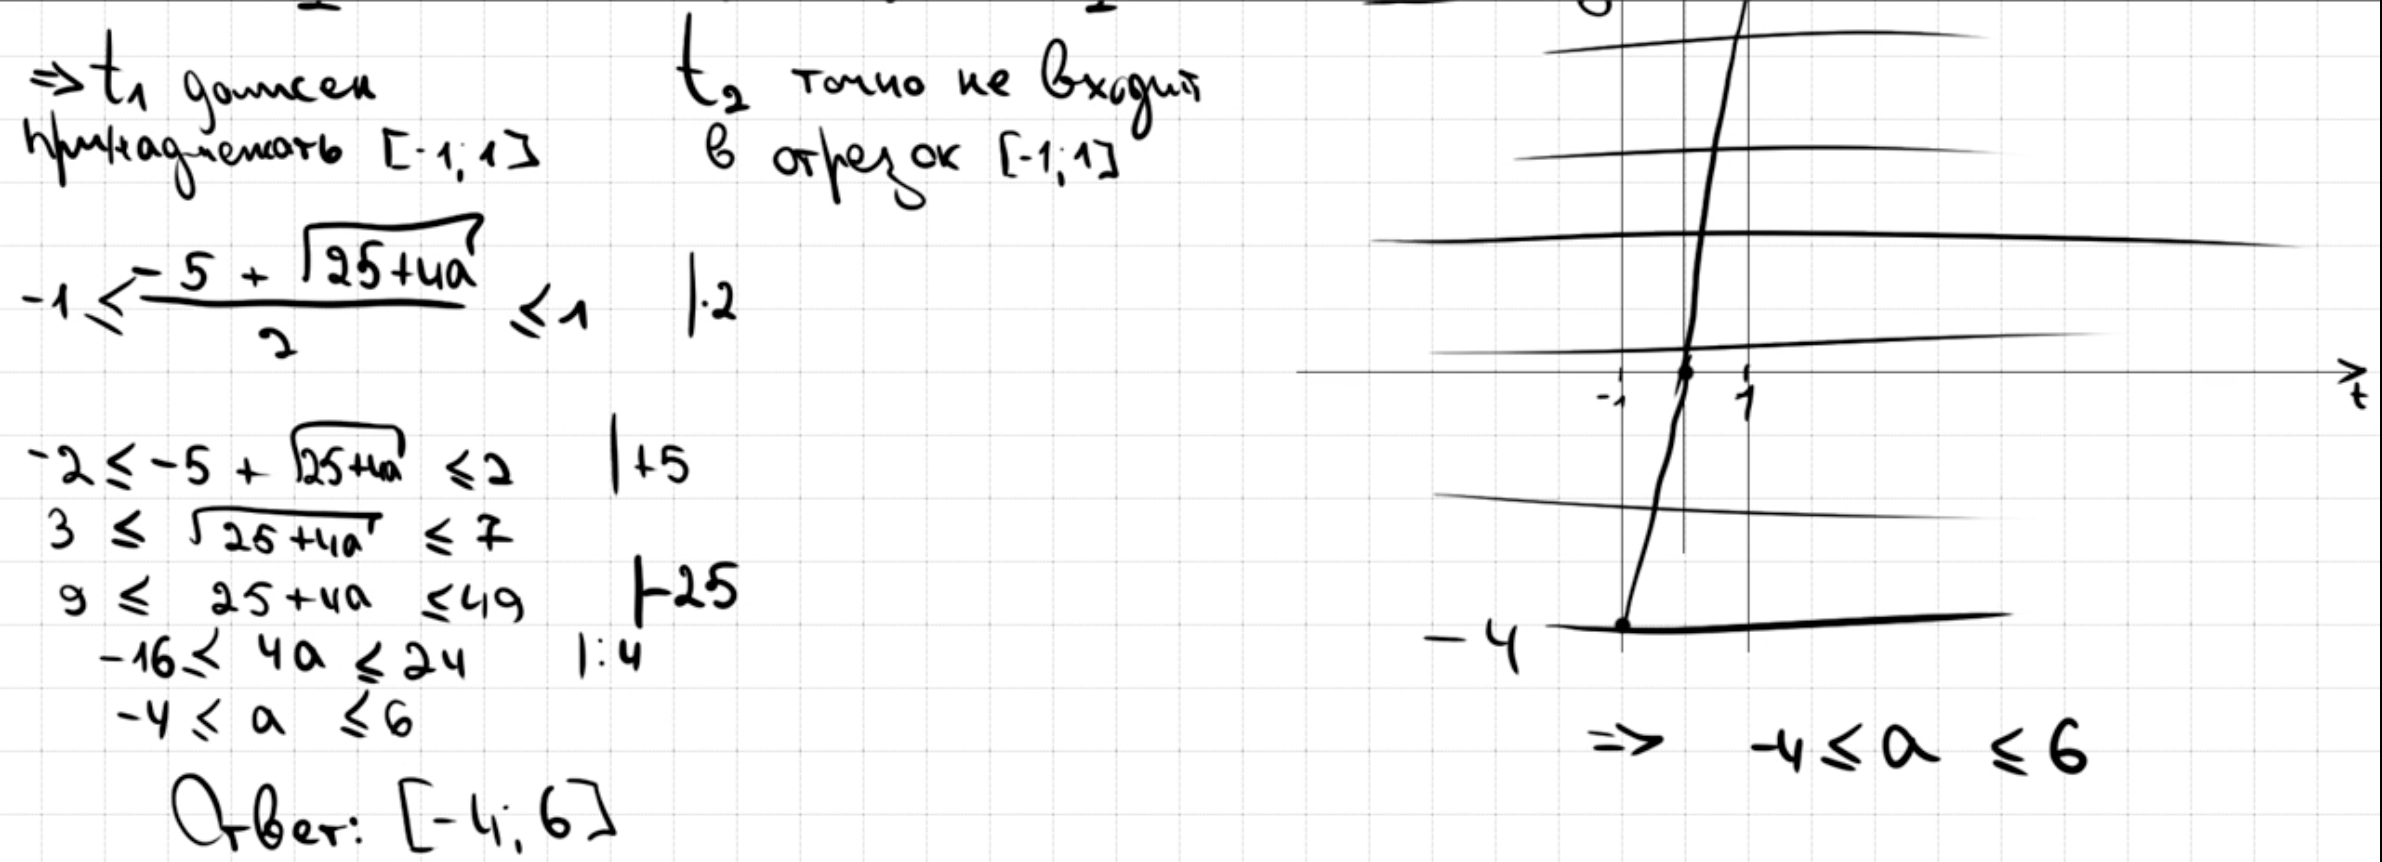 => t₁ должен
принадлежать [-1; 1]
t₂ точно не входит
в отрезок [-1; 1]
-1 ≤ (-5 + √(25+4a))/2 ≤ 1 |·2
-2 ≤ -5 + √(25+4a) ≤ 2 |+5
3 ≤ √(25+4a) ≤ 7
9 ≤ 25+4a ≤ 49 |-25
-16 ≤ 4a ≤ 24 |:4
-4 ≤ a ≤ 6
Ответ: [-4; 6]
-1 1 t
-4
=> -4 ≤ a ≤ 6